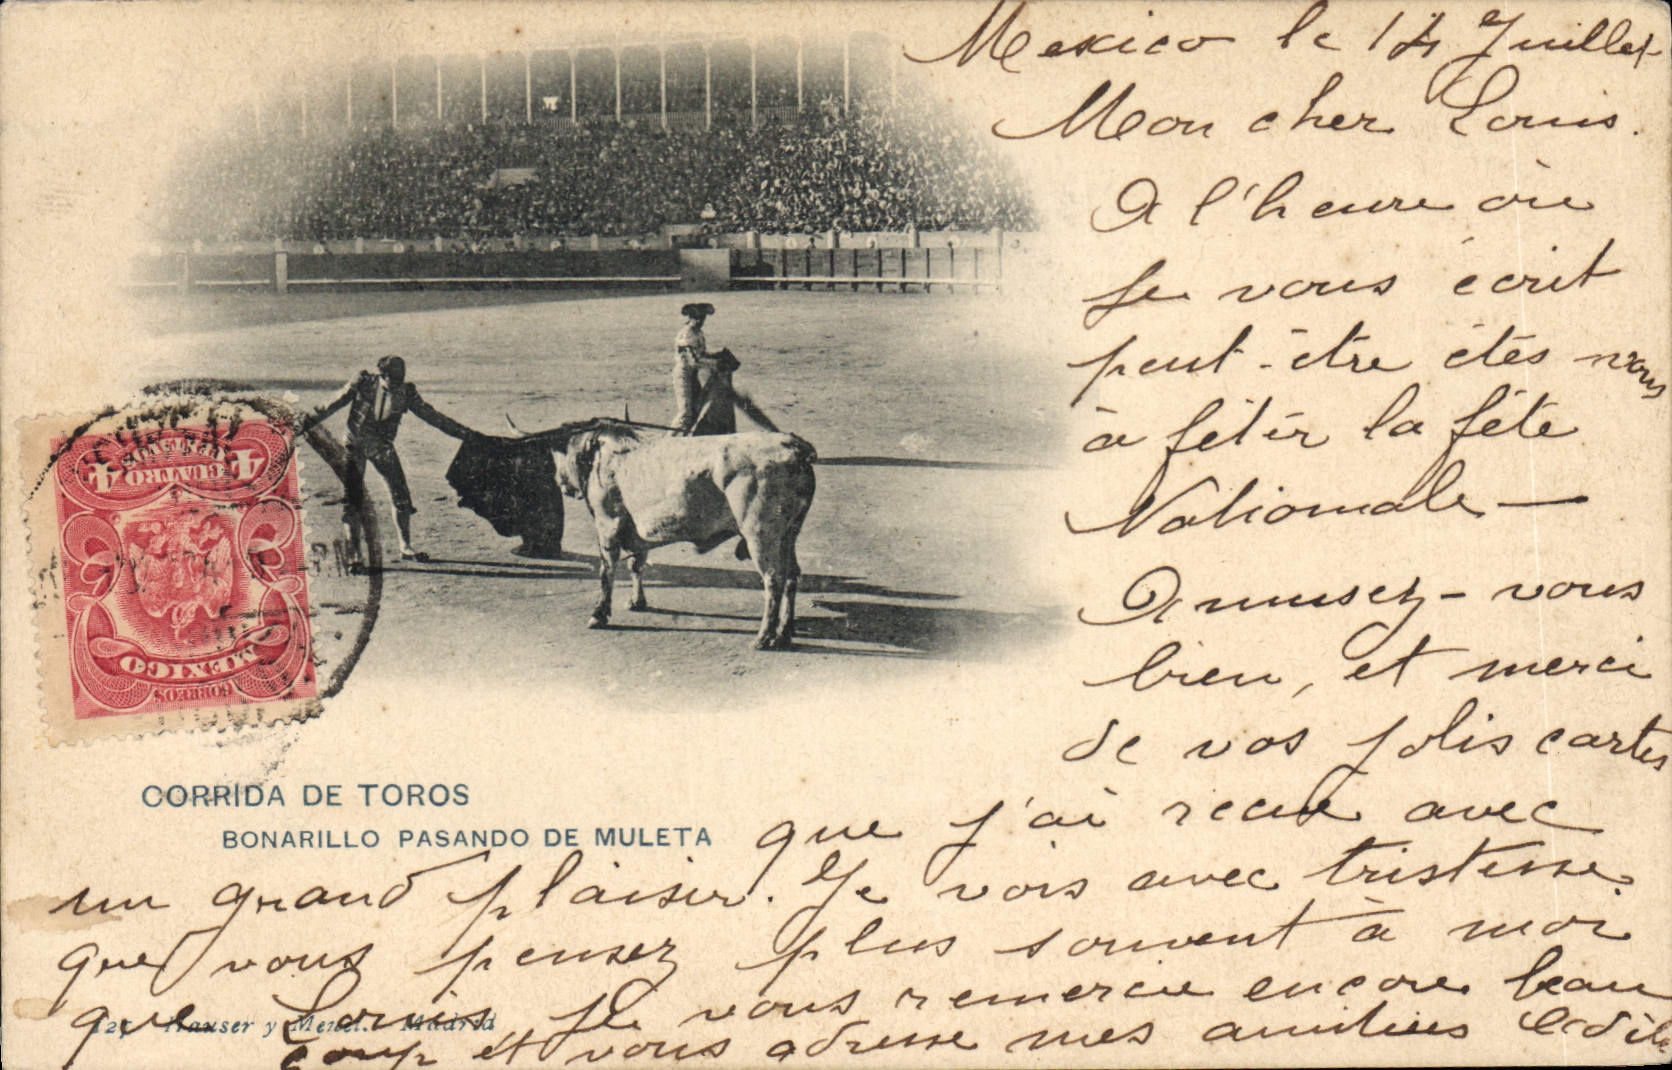 Mexico le 14 Juillet
Mon cher Louis.
A l'heure où
je vous écrit
peut-être êtes vous
à fêter la fête
Nationale —
Amusez-vous
bien, et merci
de vos jolis cartes
que j'ai recue avec
un grand plaisir. Je vois avec tristesse
que vous pensez plus souvent à moi
que Louis, je vous remercie encore beau
coup et vous adresse mes amitiées
CORRIDA DE TOROS
BONARILLO PASANDO DE MULETA
Hauser y Menet. Madrid
4 CUATRO 4
MEXICO
CORREOS